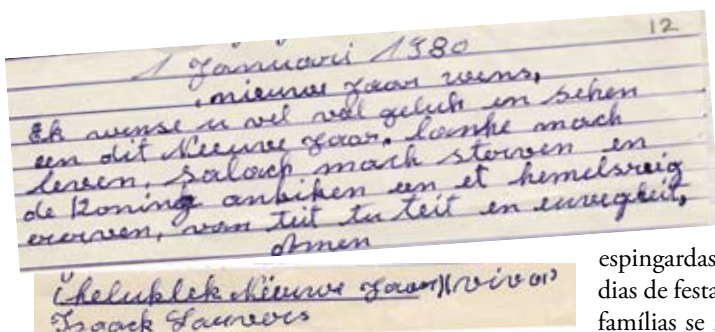 12
1 Januari 1980
, nieuwe Jaar wens,
Ek wense u vel val geluk en sehen
een dit Nieuwe Jaar, lanke mach
leven, salach mach sterven en
de Koning anbiken een et hemelsreig
ererven, van teit tu teit en euvegheit,
Amen
Cheluklek Nieuwe Jaar)(viva)
Isaack Lauvers
espingardas
dias de festa
famílias se